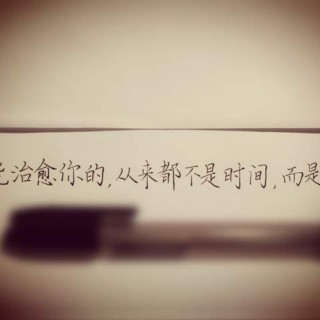 治愈你的,从来都不是时间,而是